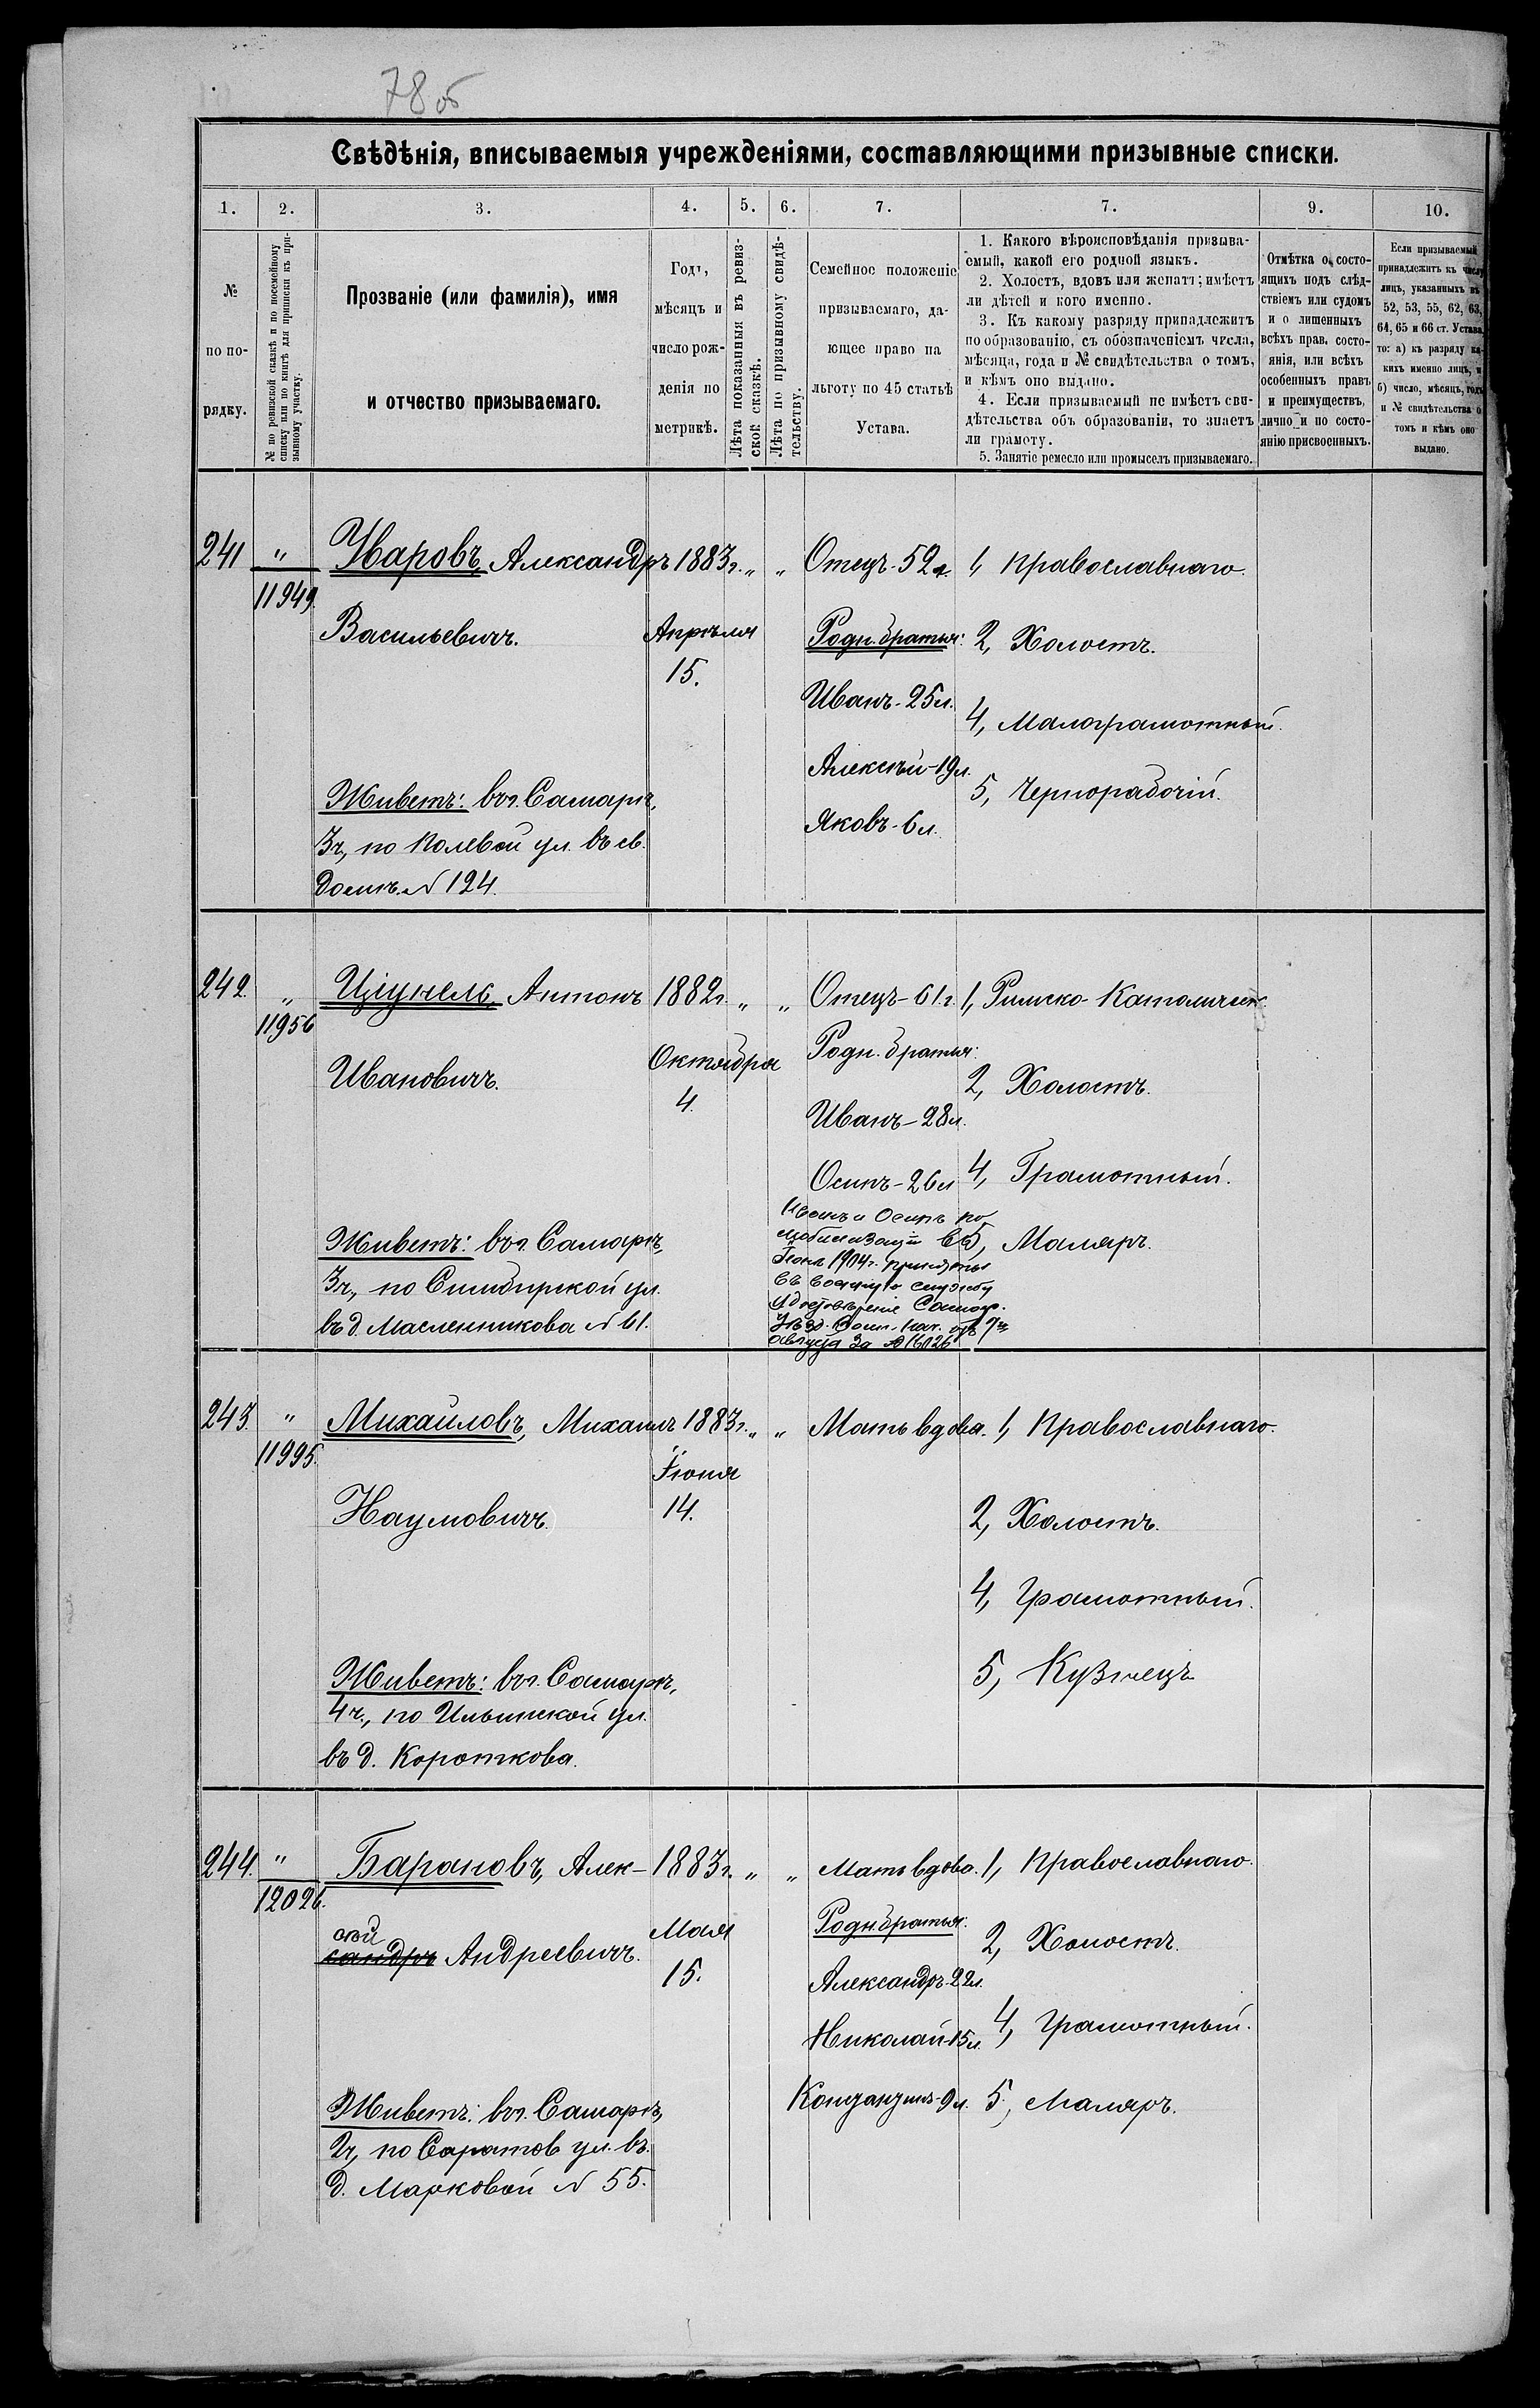 78 об
Свѣдѣнія, вписываемыя учрежденіями, составляющими призывные списки.
1.
2.
3.
4.
5.
6.
7.
7.
9.
10.
№
по по-
рядку.
№ по ревизской сказкѣ и по посемейному
списку или по книгѣ для приписки къ при-
зывному участку.
Прозваніе (или фамилія), имя
и отчество призываемаго.
Годъ,
мѣсяцъ и
число рож-
денія по
метрикѣ.
Лѣта показанныя въ ревиз-
ской сказкѣ.
Лѣта по призывному свидѣ-
тельству.
Семейное положеніе
призываемаго, да-
ющее право на
льготу по 45 статьѣ
Устава.
1. Какого вѣроисповѣданія призыва-
емый, какой его родной языкъ.
2. Холостъ, вдовъ или женатъ; имѣетъ
ли дѣтей и кого именно.
3. Къ какому разряду принадлежитъ
по образованію, съ обозначеніемъ числа,
мѣсяца, года и № свидѣтельства о томъ,
и кѣмъ оно выдано.
4. Если призываемый не имѣетъ сви-
дѣтельства объ образованіи, то знаетъ
ли грамоту.
5. Занятіе ремесло или промыселъ призываемаго.
Отмѣтка о состо-
ящихъ подъ слѣд-
ствіемъ или судомъ
и о лишенныхъ
всѣхъ правъ состо-
янія, или всѣхъ
особенныхъ правъ
и преимуществъ,
лично и по состо-
янію присвоенныхъ.
Если призываемый
принадлежитъ къ числу
лицъ, указанныхъ въ
52, 53, 55, 62, 63,
64, 65 и 66 ст. Устава,
то: а) къ разряду ка-
кихъ именно лицъ, и
б) число, мѣсяцъ, годъ
и № свидѣтельства о
томъ и кѣмъ оно
выдано.
241 " Уваровъ, Александръ 1883г. " " Отецъ-52л. 1, Православнаго.
11949.
Васильевичъ. Апрѣля Родн. братья: 2, Холостъ.
15.
Иванъ-25л. 4, Малограмотный.
Алексѣй-19л.
Живетъ: въ г. Самарѣ, 5, Чернорабочій.
Яковъ-6л.
3ч., по Полевой ул. въ св.
домѣ № 124.
242. " Ціунель, Антонъ 1882г. " " Отецъ-61г. 1, Римско-Католическ.
11956
Ивановичъ. Октября Родн. братья:
4. 2, Холостъ.
Иванъ-28л.
Осипъ-26л 4, Грамотный.
Иванъ и Осипъ по
мобилизаціи въ 5, Маляръ.
Живетъ: въ г. Самарѣ, Іюнѣ 1904г. приняты
3ч., по Симбирской ул. въ военную службу
въ д. Масленникова № 61. Удостовѣреніе Самар.
Уѣзд. Воин. Нач. отъ 7
августа за № 16026
243. " Михайловъ, Михаилъ 1883г. " " Мать вдова. 1, Православнаго.
11995.
Іюня
Наумовичъ. 14. 2, Холостъ.
4, Грамотный.
Живетъ: въ г. Самарѣ, 5, Кузнецъ
4ч., по Ильинской ул.
въ д. Короткова.
244. " Барановъ, Алек- 1883г. " " Мать вдова. 1, Православнаго.
12026.
сѣй
сандръ Андреевичъ. Мая Родн. братья: 2, Холостъ.
15. Александръ-22л.
Николай-15л. 4, Грамотный.
Живетъ: въ г. Самарѣ, Констанстинъ-9л. 5, Маляръ.
2ч., по Саратов ул. въ
д. Марковой № 55.